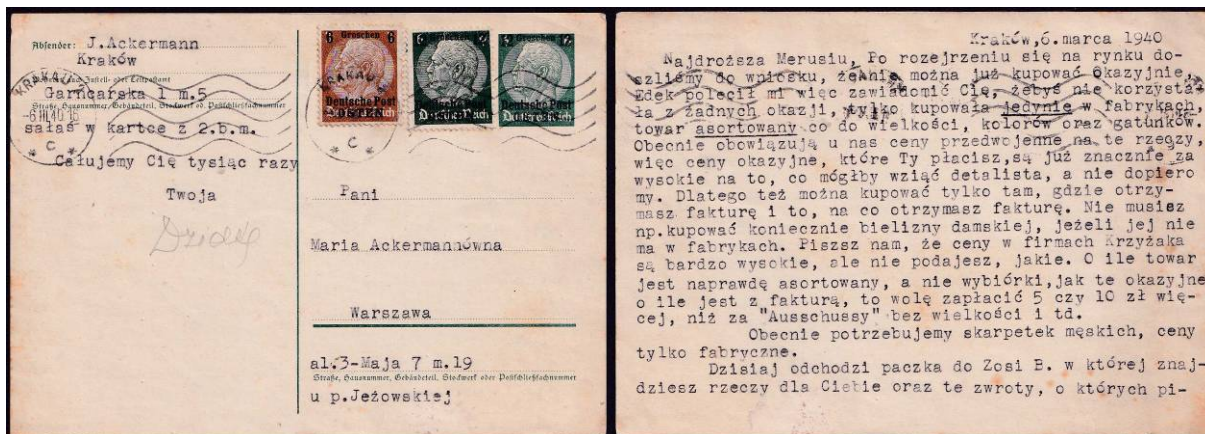 Absender: J.Ackermann
Kraków
Garncarska 1 m.5
Straße, Hausnummer, Gebäudeteil, Stockwerk od. Postschließfachnummer
sałaś w kartce z 2.b.m.
Całujemy Cię tysiąc razy
Twoja
6 Groschen 6
Deutsche Post
OSTEN
Deutsches Reich
Groschen
Deutsche Post
Deutsches Reich
12 Groschen 12
Deutsche Post
OSTEN
Deutsches Reich
KRAKAU
-6.III.40.16
* C *
KRAKAU
* C *
Pani
Maria Ackermannówna
Warszawa
al.3-Maja 7 m.19
Straße, Hausnummer, Gebäudeteil, Stockwerk oder Postschließfachnummer
u p.Jeżowskiej
Kraków,6.marca 1940
Najdroższa Merusiu, Po rozejrzeniu się na rynku do-
szliśmy do wniosku, że nie można już kupować okazyjnie,
Edek polecił mi więc zawiadomić Cię, żebyś nie korzysta-
ła z żadnych okazji, tylko kupowała jedynie w fabrykach,
towar asortowany co do wielkości, kolorów oraz gatunków.
Obecnie obowiązują u nas ceny przedwojenne na te rzeczy,
więc ceny okazyjne, które Ty płacisz,są już znacznie za
wysokie na to, co mógłby wziąć detalista, a nie dopiero
my. Dlatego też można kupować tylko tam, gdzie otrzy-
masz fakturę i to, na co otrzymasz fakturę. Nie musisz
np.kupować koniecznie bielizny damskiej, jeżeli jej nie
ma w fabrykach. Piszsz nam, że ceny w firmach Krzyżaka
są bardzo wysokie, ale nie podajesz, jakie. O ile towar
jest naprawdę asortowany, a nie wybiórki,jak te okazyjne
o ile jest z fakturą, to wolę zapłacić 5 czy 10 zł wię-
cej, niż za "Ausschussy" bez wielkości i td.
Obecnie potrzebujemy skarpetek męskich, ceny
tylko fabryczne.
Dzisiaj odchodzi paczka do Zosi B. w której znaj-
dziesz rzeczy dla Ciebie oraz te zwroty, o których pi-